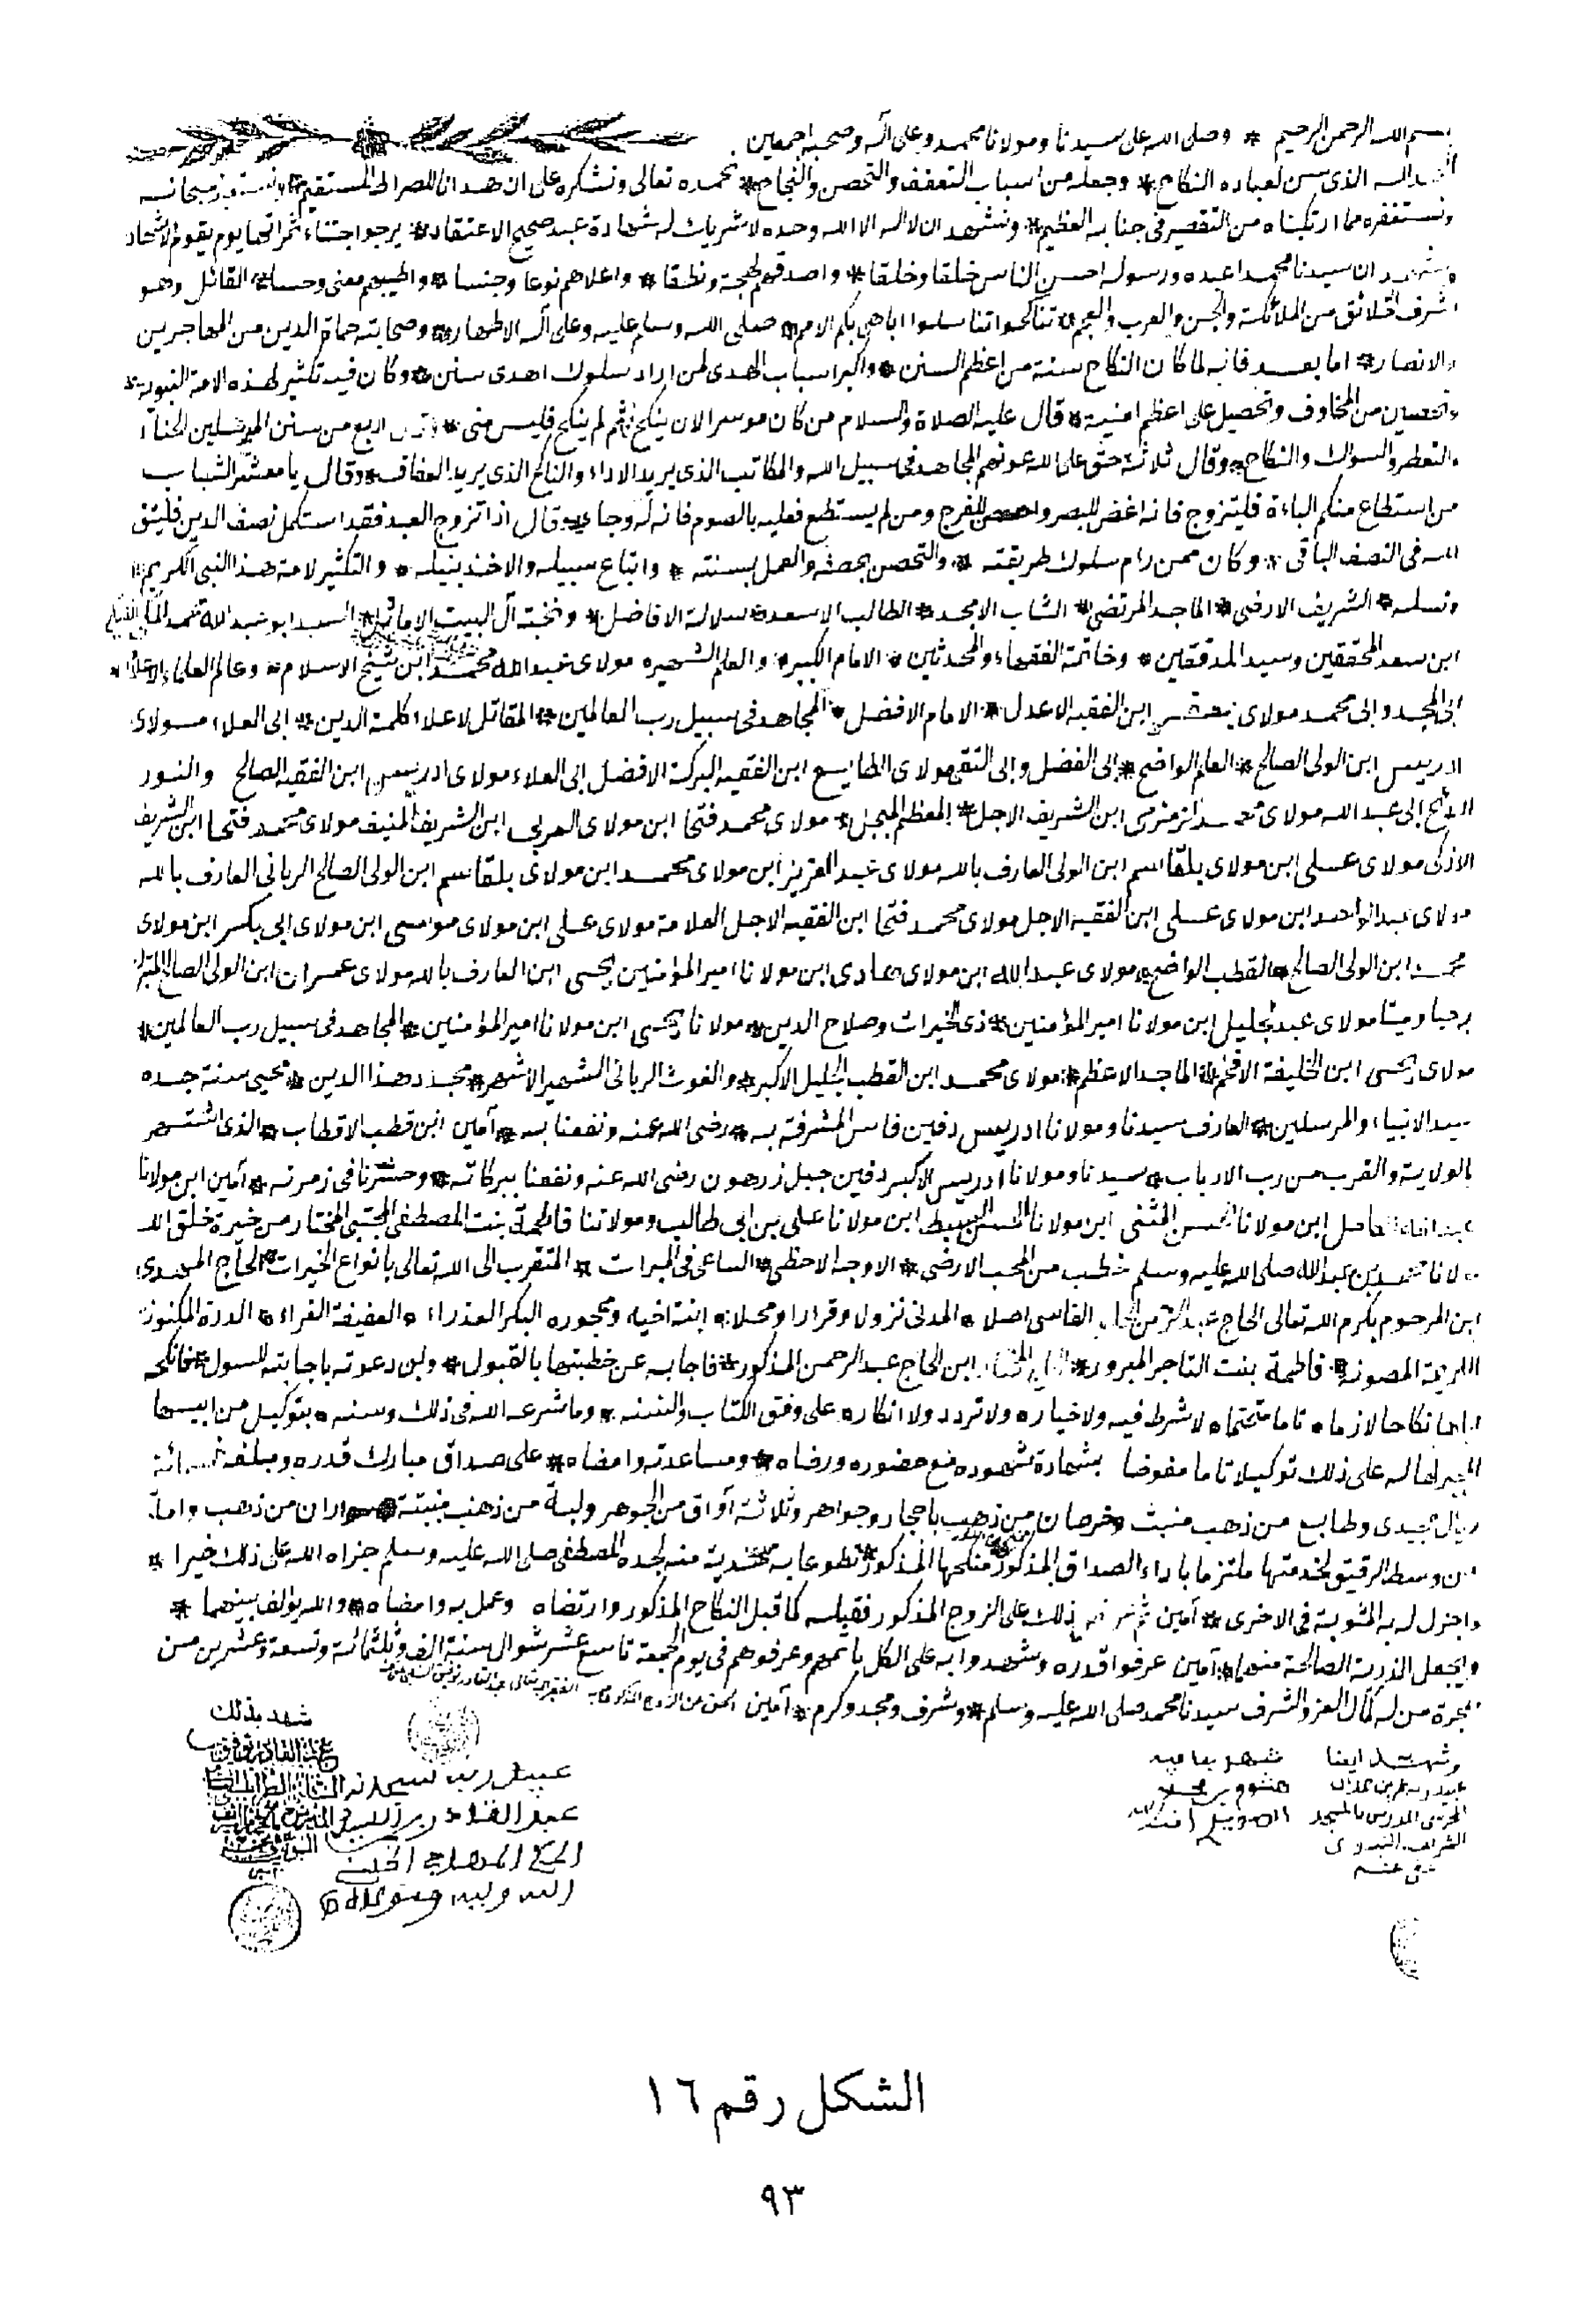 بسم الله الرحمن الرحيم * وصلى الله على سيدنا ومولانا محمد وعلى آله وصحبه اجمعين
الحمد لله الذى سن لعباده النكاح * وجعله من اسباب التعفف والتحصن والنجاح * نحمده تعالى ونشكره على ان هدانا للصراط المستقيم * سبحانه
ونستغفره مما ارتكبناه من التقصير فى جنابه العظيم * ونشهد ان لا اله الا الله وحده لا شريك له شهادة عبد صحيح الاعتقاد * يرجو اجتناء ثمراتها يوم يقوم الاشهاد
ونشهد ان سيدنا محمدا عبده ورسوله احسن الناس خلقا وخلقا * واصدقهم لهجة ونطقا * واعلاهم نوعا وجنسا * واطيبهم معنى وحسا * القائل وهو
اشرف الخلائق من الملائكة والجن والعرب والعجم * تناكحوا تناسلوا اباهى بكم الامم * صلى الله وسلم عليه وعلى آله الاطهار * وصحابته حماة الدين من المهاجرين
والانصار * اما بعد فانه لما كان النكاح سنة من اعظم السنن * واكبر اسباب الهدى لمن اراد سلوك اهدى سنن * وكان فيه تكثير لهذه الامة النبوية *
وتحصين من المخاوف وتحصيل على اعظم امنية * قال عليه الصلاة والسلام من كان موسرا لان ينكح ثم لم ينكح فليس منى * اربع من سنن المرسلين الحناء
والتعطر والسواك والنكاح * وقال ثلاثة حق على الله عونهم المجاهد فى سبيل الله والمكاتب الذى يريد الاداء والناكح الذى يريد العفاف * وقال يا معشر الشباب
من استطاع منكم الباءة فليتزوج فانه اغض للبصر واحصن للفرج ومن لم يستطع فعليه بالصوم فانه له وجاء * وقال اذا تزوج العبد فقد استكمل نصف الدين فليتق
الله فى النصف الباقى * وكان ممن رام سلوك طريقته * والتحصن بحصنه والعمل بسنته * واتباع سبيله والاخذ بنيله * والتكثير لامة هذا النبى الكريم
ونسله * الشريف الارضى * الماجد المرتضى * الشاب الامجد * الطالب الاسعد * سلالة الافاضل * ونخبة آل البيت الاماثل * السيد ابو عبد الله محمد
ابن سعد المحققين وسيد المدققين * وخاتمة الفقهاء والمحدثين * الامام الكبير * والعلم الشهير * مولاى عبد الله محمد ابن شيخ الاسلام * وعالم العلماء الاعلام *
ابى المجد وابى محمد مولاى ابن الفقيه الاعدل * الامام الافضل * المجاهد فى سبيل رب العالمين * المقاتل لاعلاء كلمة الدين * ابى العلاء مولاى
ادريس ابن الولى الصالح * العلم الواضح * ابى الفضل وابى التقى مولاى الطايع ابن الفقيه البركة الافضل ابى العلاء مولاى ادريس ابن الفقيه الصالح والنور
ابى عبد الله مولاى محمد الزمزمى ابن الشريف الاجل * المعظم المبجل * مولاى محمد فتحا ابن مولاى العربى ابن الشريف المنيف مولاى محمد فتحا ابن الشريف
الازكى مولاى على ابن مولاى بلقاسم ابن الولى العارف بالله مولاى عبد العزيز ابن مولاى محمد ابن مولاى بلقاسم ابن الولى الصالح الربانى العارف بالله
مولاى عبد الواحد ابن مولاى على ابن الفقيه الاجل مولاى محمد فتحا ابن الفقيه الاجل العلامة مولاى على ابن مولاى موسى ابن مولاى ابى بكر ابن مولاى
محمد ابن الولى الصالح * القطب الواضح * مولاى عبد الله ابن مولاى هادى ابن مولانا امير المؤمنين يحيى ابن العارف بالله مولاى عمران ابن الولى الصالح
به حيا وميتا مولاى عبد الجليل ابن مولانا امير المؤمنين * ذى الخيرات وصلاح الدين * مولانا يحيى ابن مولانا امير المؤمنين * المجاهد فى سبيل رب العالمين *
مولاى يحيى ابن الخليفة الافخم * الماجد الاعظم * مولاى محمد ابن القطب الجليل الاكبر * والغوث الربانى الشهير الاشهر * مجدد هذا الدين * محيى سنة جده
سيد الانبياء والمرسلين * العارف سيدنا ومولانا ادريس دفين فاس المشرفة به * رضى الله عنه ونفعنا به * آمين ابن قطب الاقطاب * الذى اشتهر
بالولاية والقرب من رب الارباب * سيدنا ومولانا ادريس الاكبر دفين جبل زرهون رضى الله عنه ونفعنا ببركاته * وحشرنا فى زمرته * آمين ابن مولانا
عبد الله الكامل ابن مولانا الحسن المثنى ابن مولانا الحسن السبط ابن مولانا على بن ابى طالب ومولاتنا فاطمة بنت المصطفى المجتبى المختار من خيرة خلق الله
مولانا محمد بن عبد الله صلى الله عليه وسلم خطب من المحب الارضى * الاوجه الاحظى * الساعى فى المبرات * المتقرب الى الله تعالى بانواع الخيرات * الحاج المهدى
ابن المرحوم بكرم الله تعالى الحاج عبد الرحمن الفاسى اصلا * المدنى نزولا وقرارا ومحلا * ابنة اخيه ومحجوره البكر العذراء * العفيفة الغراء * الدرة المكنونة
المصونة * فاطمة بنت التاجر المبرور * ابن الحاج عبد الرحمن المذكور * فاجابه عن خطبتها بالقبول * ولبى دعوته باجابته للسول * فانكحه
اياها نكاحا لازما * تاما متحتما * لا شرط فيه ولا خياره ولا تردد ولا انكاره على وفق الكتاب والسنة * وما شرعه الله فى ذلك وسنه * بتوكيل من ابيها
المجبر لها له على ذلك توكيلا تاما مفوضا بشهادة شهوده مع حضوره ورضاه * ومساعدته وامضاه * على صداق مبارك قدره ومبلغه
ريال مجيدى وطابع من ذهب منبت وخرصان من ذهب باحجار وجواهر وثلاثة آواق من الجوهر ولبة من ذهب منبتة من ذهب وامة
من وسط الرقيق لخدمتها ملتزما باداء الصداق المذكور منكحها المذكور تطوعا به منه لجده المصطفى صلى الله عليه وسلم جزاه الله على ذلك خيرا *
واجزل له به المثوبة فى الاخرى * آمين ثم ذلك على الزوج المذكور فقبله كما قبل النكاح المذكور وارتضاه وعمل به وامضاه * والله يؤلف بينهما *
ويجعل الذرية الصالحة منهما * آمين عرفوا قدره وشهدوا به على الكل باتمهم وعرفوهم فى يوم الجمعة تاسع عشر شوال سنة الف وثلثمائة وتسعة وعشرين من
هجرة من له كمال العز والشرف سيدنا محمد صلى الله عليه وسلم * وشرف ومجد وكرم * آمين
شهد بذلك
وشهد ايضا
شهد بما فيه
المدرس بالمسجد
الشريف النبوى
عفى عنه
الشكل رقم ١٦
٩٣